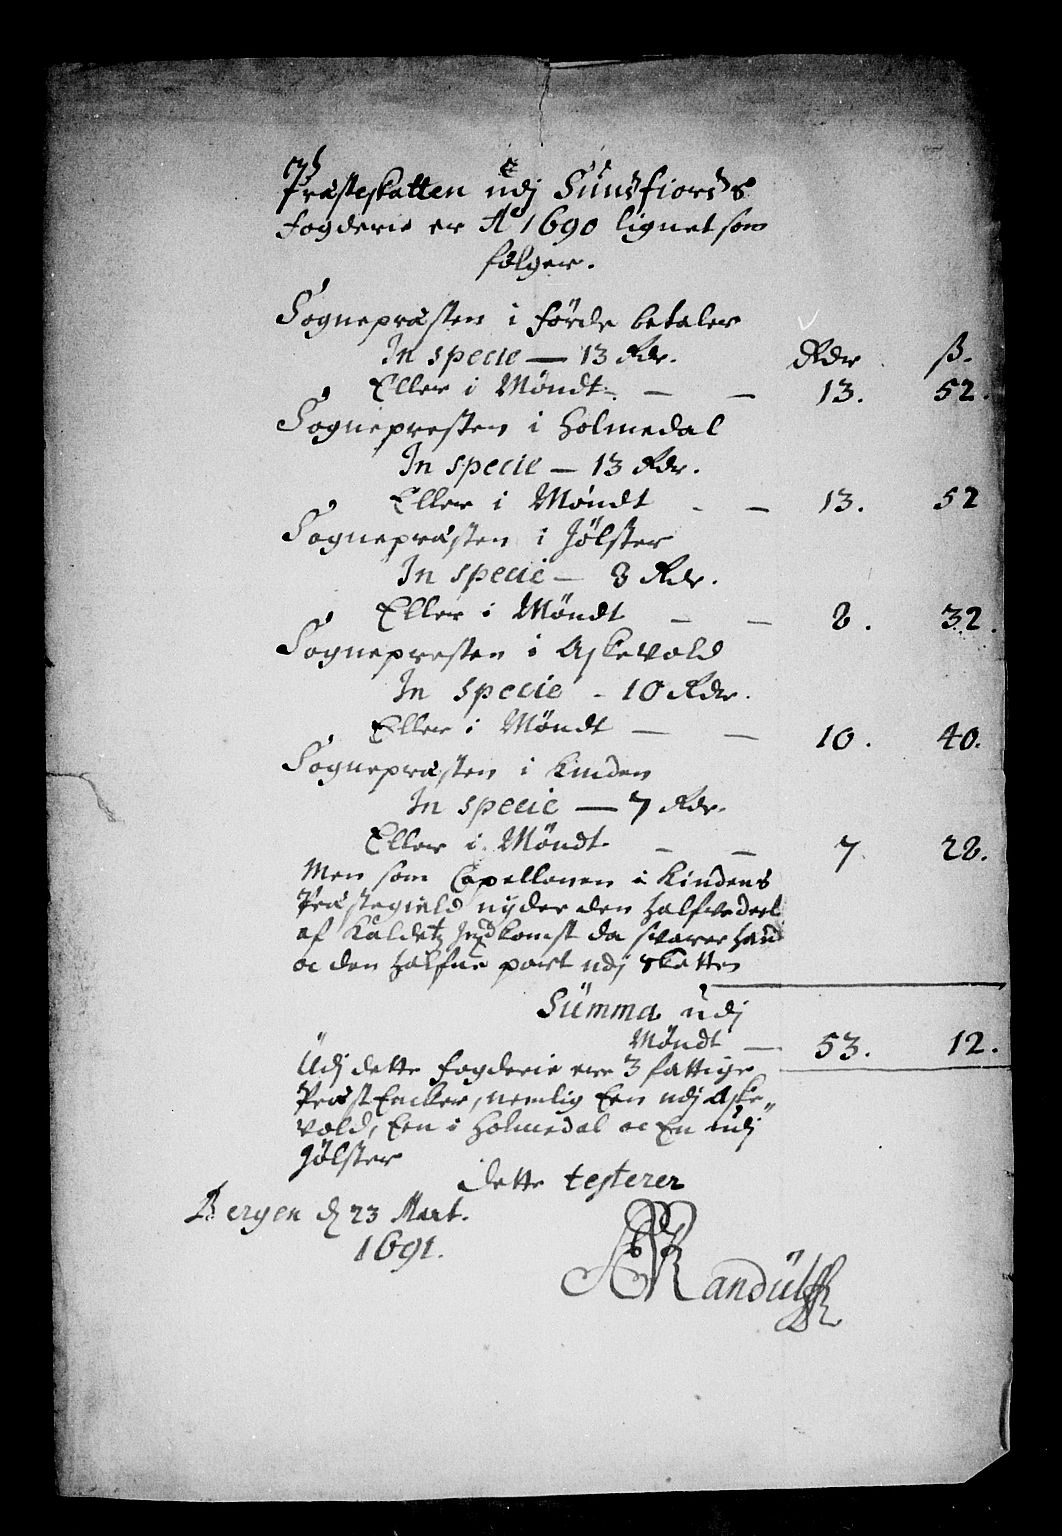 Præsteskatten udj Sundfiords
fogderie er A° 1690 lignet som
følger.
Sognepræsten i førde betaler
In specie — 13 Rdr. Rdr ß.
Eller i Møndt. — — 13. 52.
Sognepresten i Holmedal
In specie — 13 Rdr.
Eller i Møndt - — 13. 52
Sognepræsten i Jølster
In specie — 8 Rdr.
Eller i Møndt — — 8. 32.
Sognepresten i Askevold
In specie - 10 Rdr.
Eller i Møndt — — 10. 40.
Sognepræsten i Kinden
In specie — 7 Rdr.
Eller i Møndt — — 7 28.
Men som Capellanen i Kindens
Præstegield nyder den halfvedeel
af Kaldetz Indkomst da svarer hand
oc den halfue part udj Skatten
Summa udj
Møndt — 53. 12.
Udj dette fogderie ere 3 fattige
Præst Encker, nemlig Een udj Aske-
vold, Een i Holmedal oc En udj
Jølster
Dette testerer
Bergen d 23 Mart.
1691.
Randulff